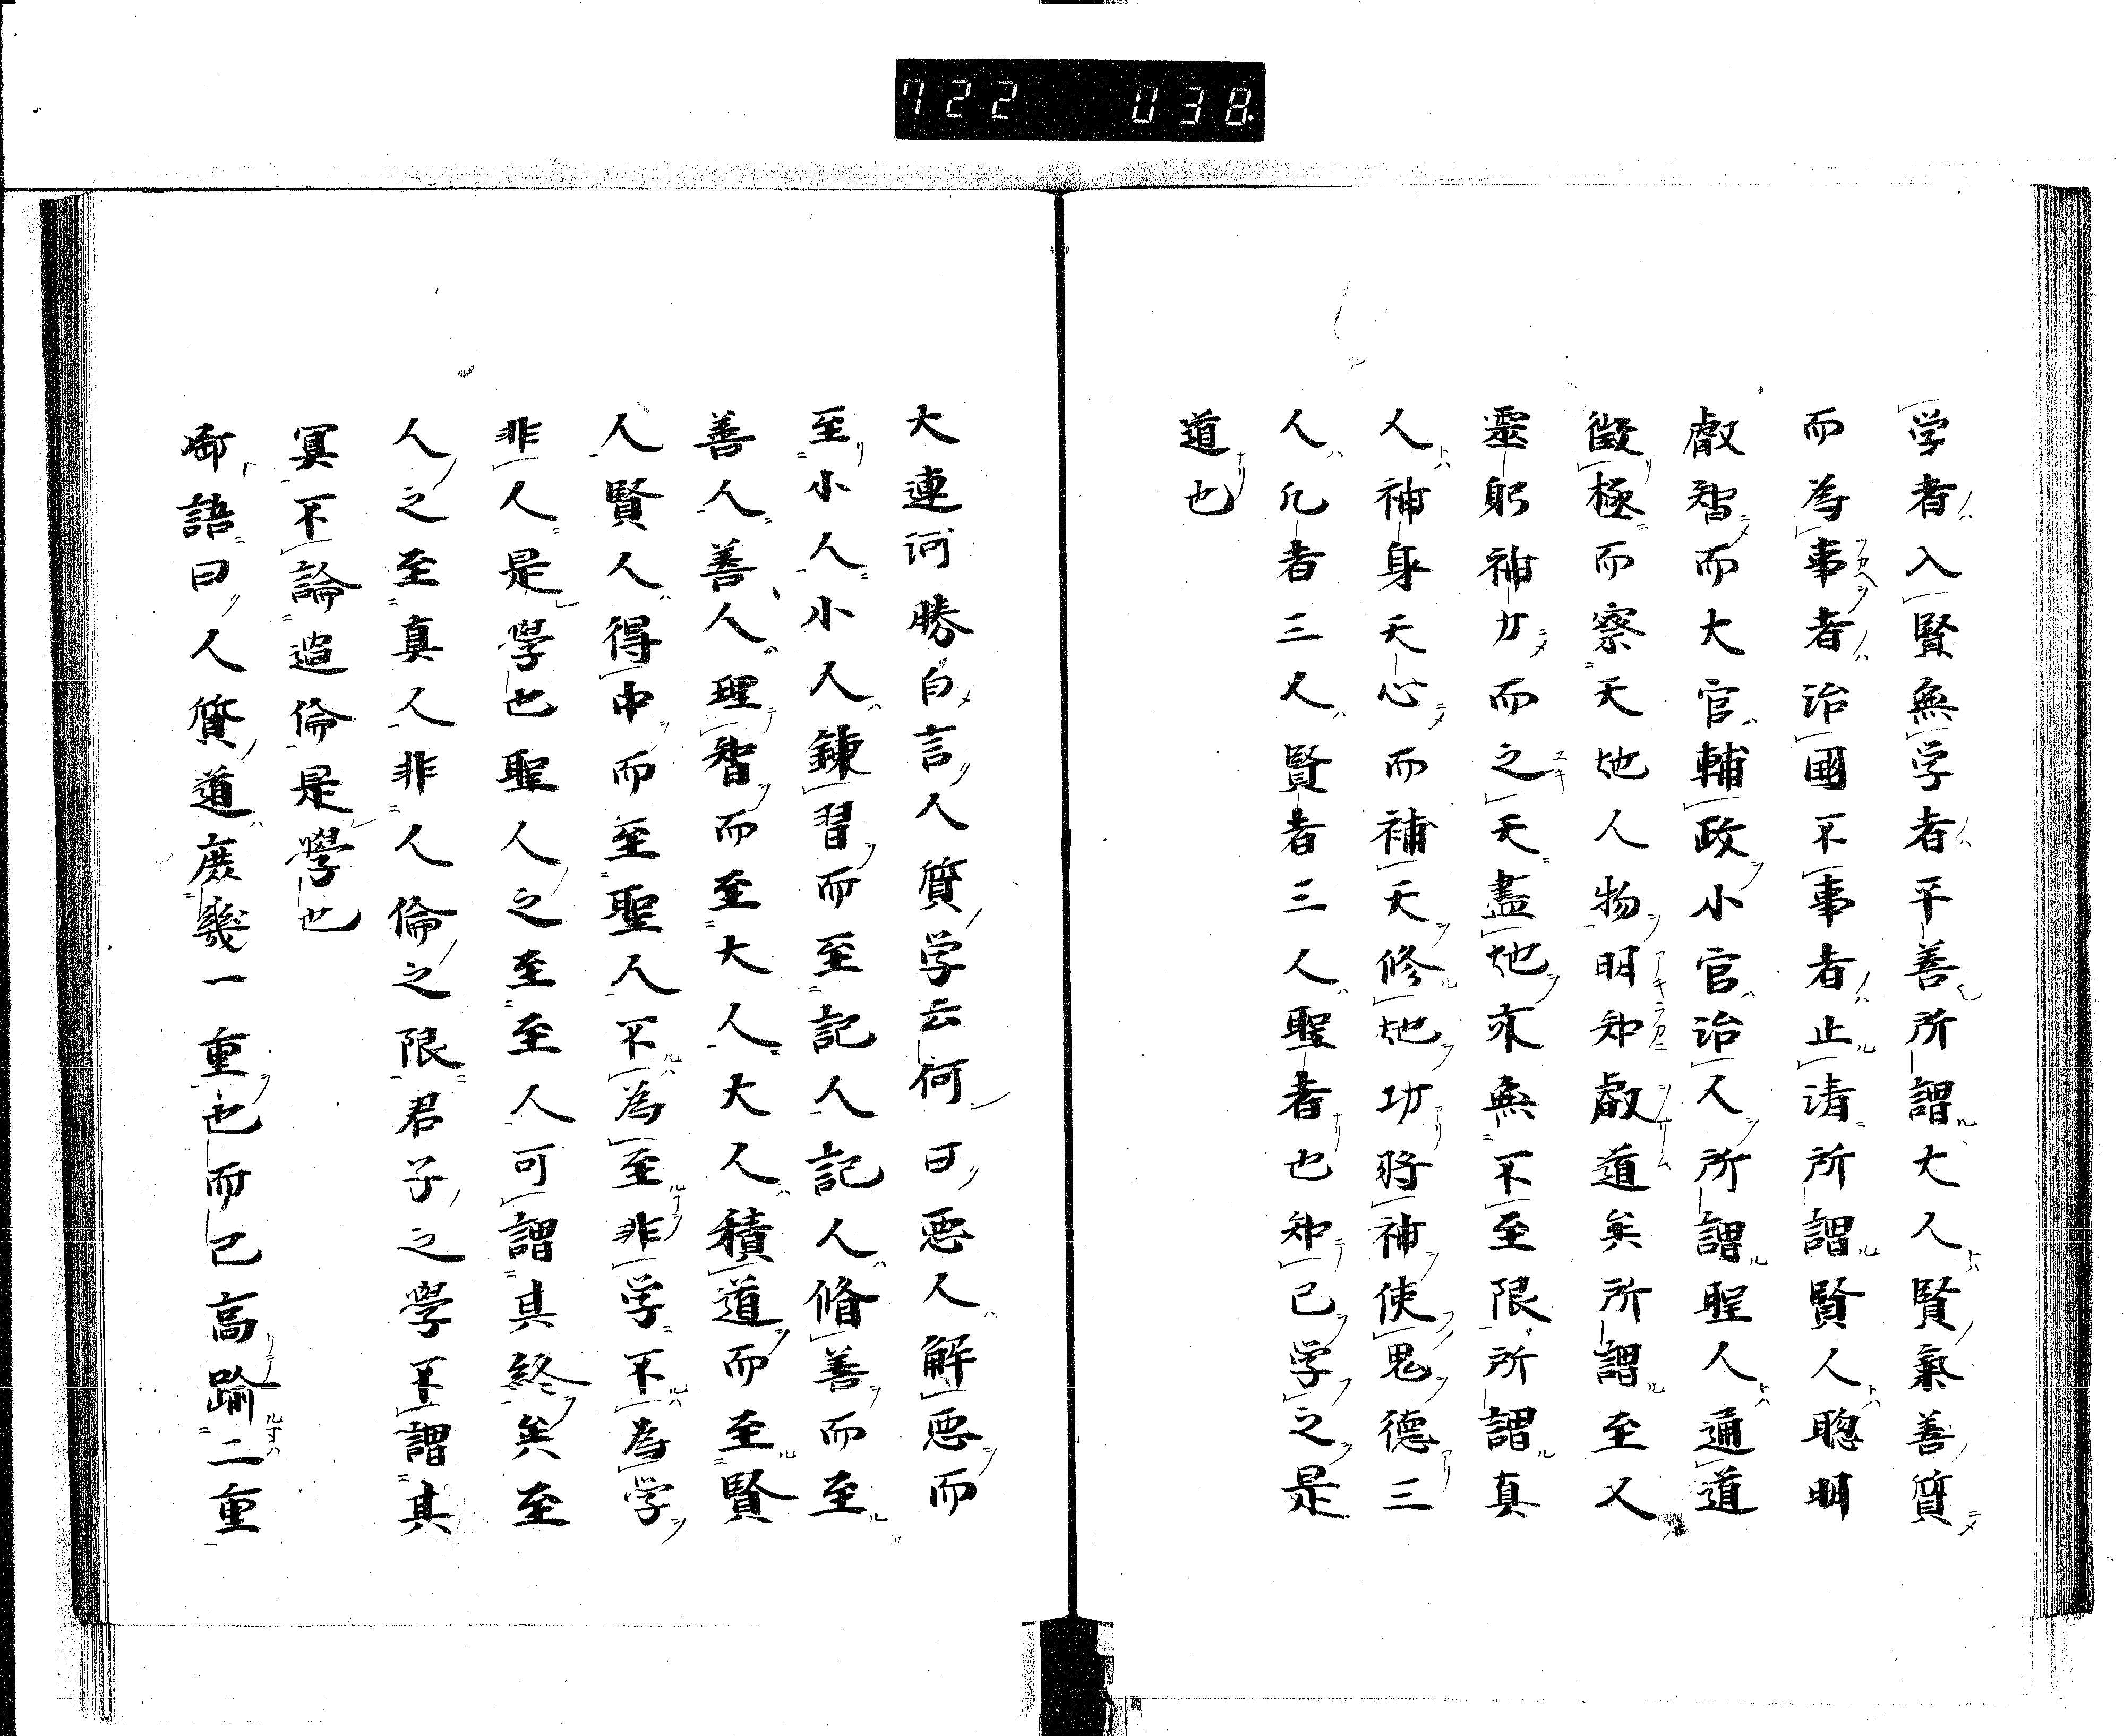 722 038
学者入賢無学者平善所謂大人賢氣善質
而為事者治國不事者止清所謂賢人聰明
叡智而大官輔政小官治人所謂聖人通道
徴極而察天地人物明知叡道矣所謂至人
靈躬神力而之天盡地亦無不至限所謂真
人神身天心而補天修地功將神使鬼德三
人凡者三人賢者三人聖者也知己学之是
道也
大連河勝白言人質学云何曰惡人解惡而
至小人小人錬習而至記人記人脩善而至
善人善人理智而至大人大人積道而至賢
人賢人得中而至聖人不為至非学不為学
非人是學也聖人之至至人可謂其終矣至
人之至真人非人倫之限君子之學不謂其
冥不論造倫是學也
御語曰人質道庶幾一重也而已高踰二重